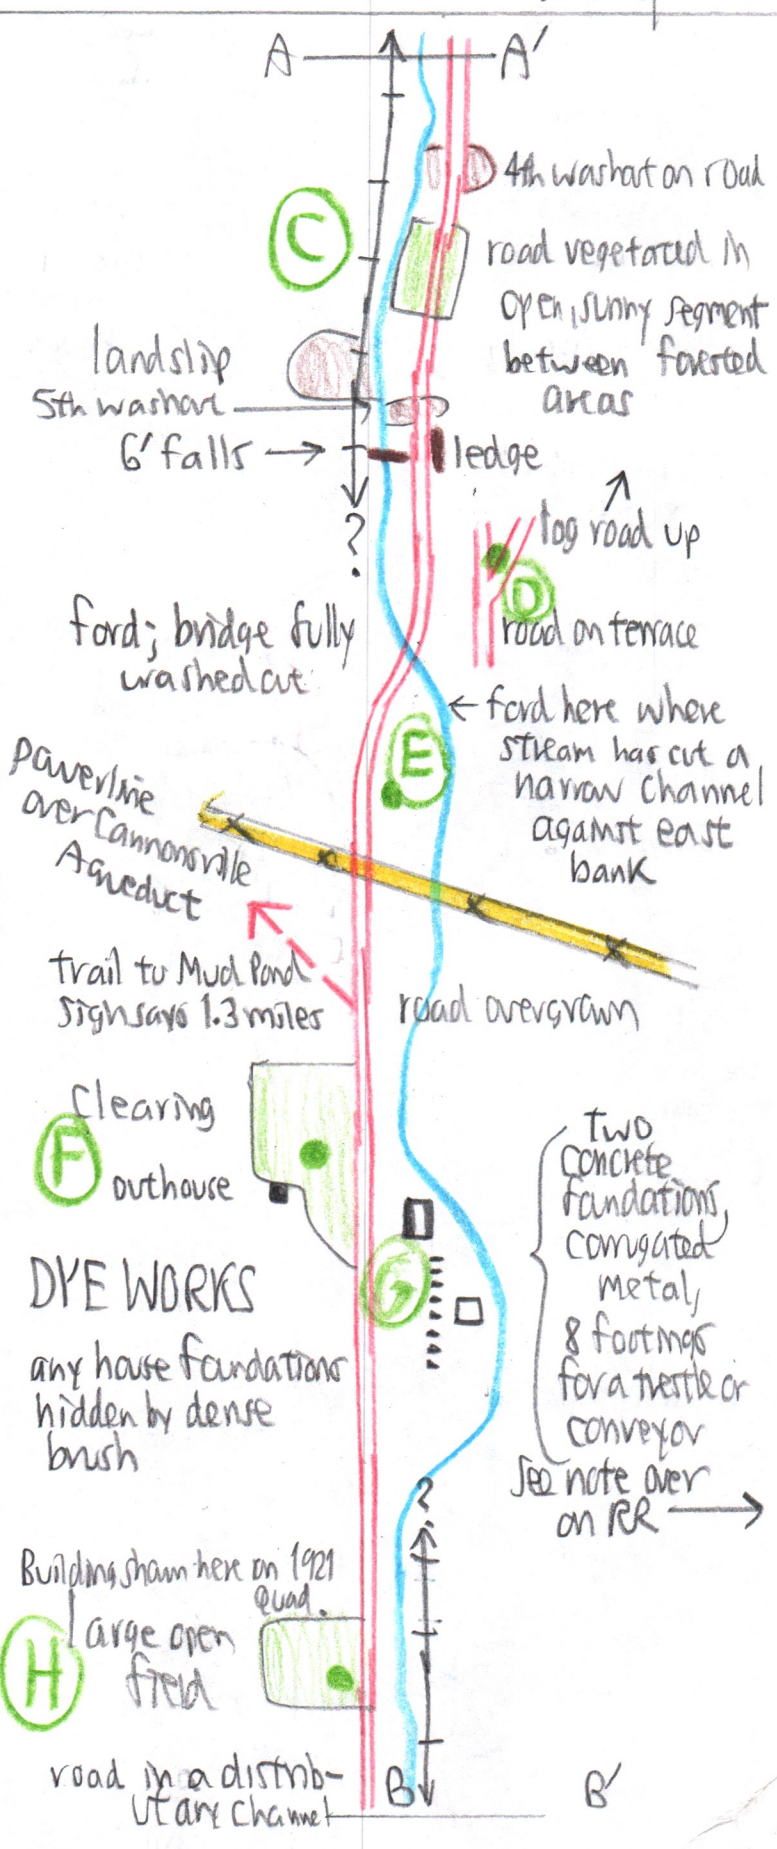 A A'
4th washout on road
C
road vegetated in
open, sunny segment
between forested
areas
landslip
5th washout
6' falls → ledge
?
log road up
D
road on terrace
ford; bridge fully
washed out
← ford here where
stream has cut a
narrow channel
against east
bank
E
powerline
over Cannonsville
Aqueduct
trail to Mud Pond
sign says 1.3 miles
road overgrown
Clearing
F
outhouse
two
concrete
foundations,
corrugated
metal,
8 footings
for a trestle or
conveyor
See note over
on RR →
G
DYE WORKS
any house foundations
hidden by dense
brush
?
Building shown here on 1921
Quad.
large open
field
H
road in a distrib-
utary channel
B B'